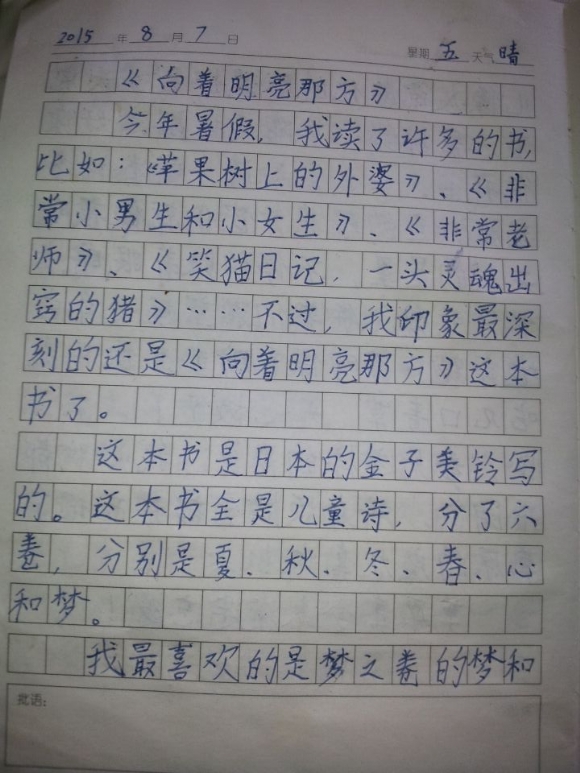 2015年8月7日 星期五 天气晴
《向着明亮那方》
今年暑假，我读了许多的书，
比如：《苹果树上的外婆》、《非
常小男生和小女生》、《非常老
师》、《笑猫日记，一头灵魂出
窍的猪》……不过，我印象最深
刻的还是《向着明亮那方》这本
书了。
这本书是日本的金子美铃写
的。这本书全是儿童诗，分了六
卷，分别是夏、秋、冬、春、心
和梦。
我最喜欢的是梦之卷的梦和
批语：